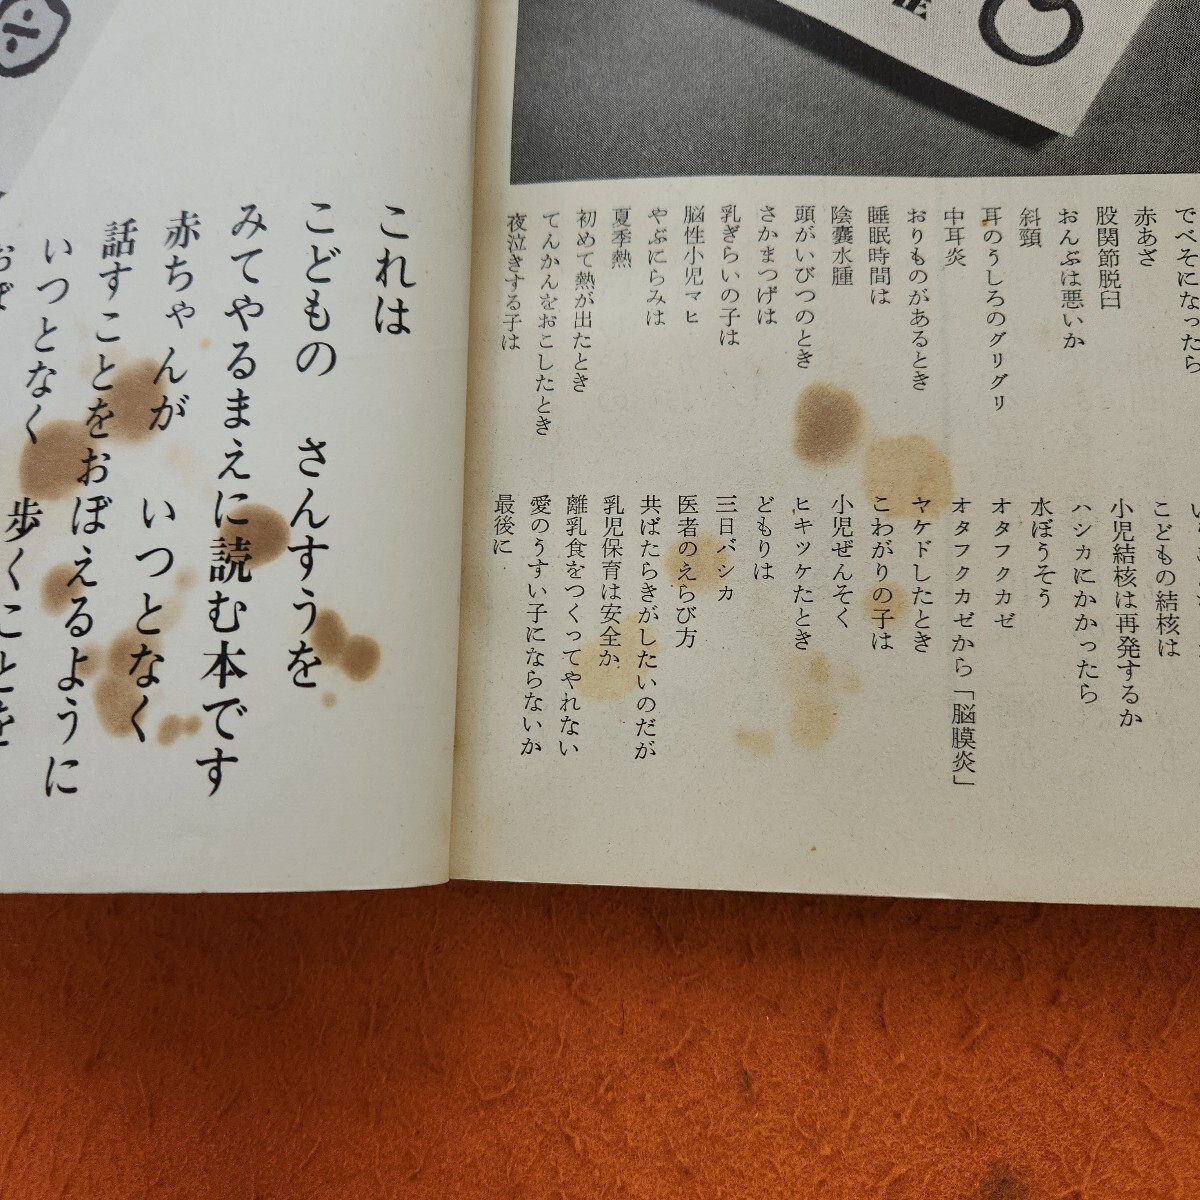 でべそになったら
赤あざ
股関節脱臼
おんぶは悪いか
斜頸
耳のうしろのグリグリ
中耳炎
おりものがあるとき
睡眠時間は
陰嚢水腫
頭がいびつのとき
さかまつげは
乳ぎらいの子は
脳性小児マヒ
やぶにらみは
夏季熱
初めて熱が出たとき
てんかんをおこしたとき
夜泣きする子は
こどもの結核は
小児結核は再発するか
ハシカにかかったら
水ぼうそう
オタフクカゼ
オタフクカゼから「脳膜炎」
ヤケドしたとき
こわがりの子は
小児ぜんそく
ヒキツケたとき
どもりは
三日バシカ
医者のえらび方
共ばたらきがしたいのだが
乳児保育は安全か
離乳食をつくってやれない
愛のうすい子にならないか
最後に
これは
こどもの　さんすうを
みてやるまえに読む本です
赤ちゃんが　いつとなく
話すことをおぼえるように
いつとなく　歩くことを
おぼ